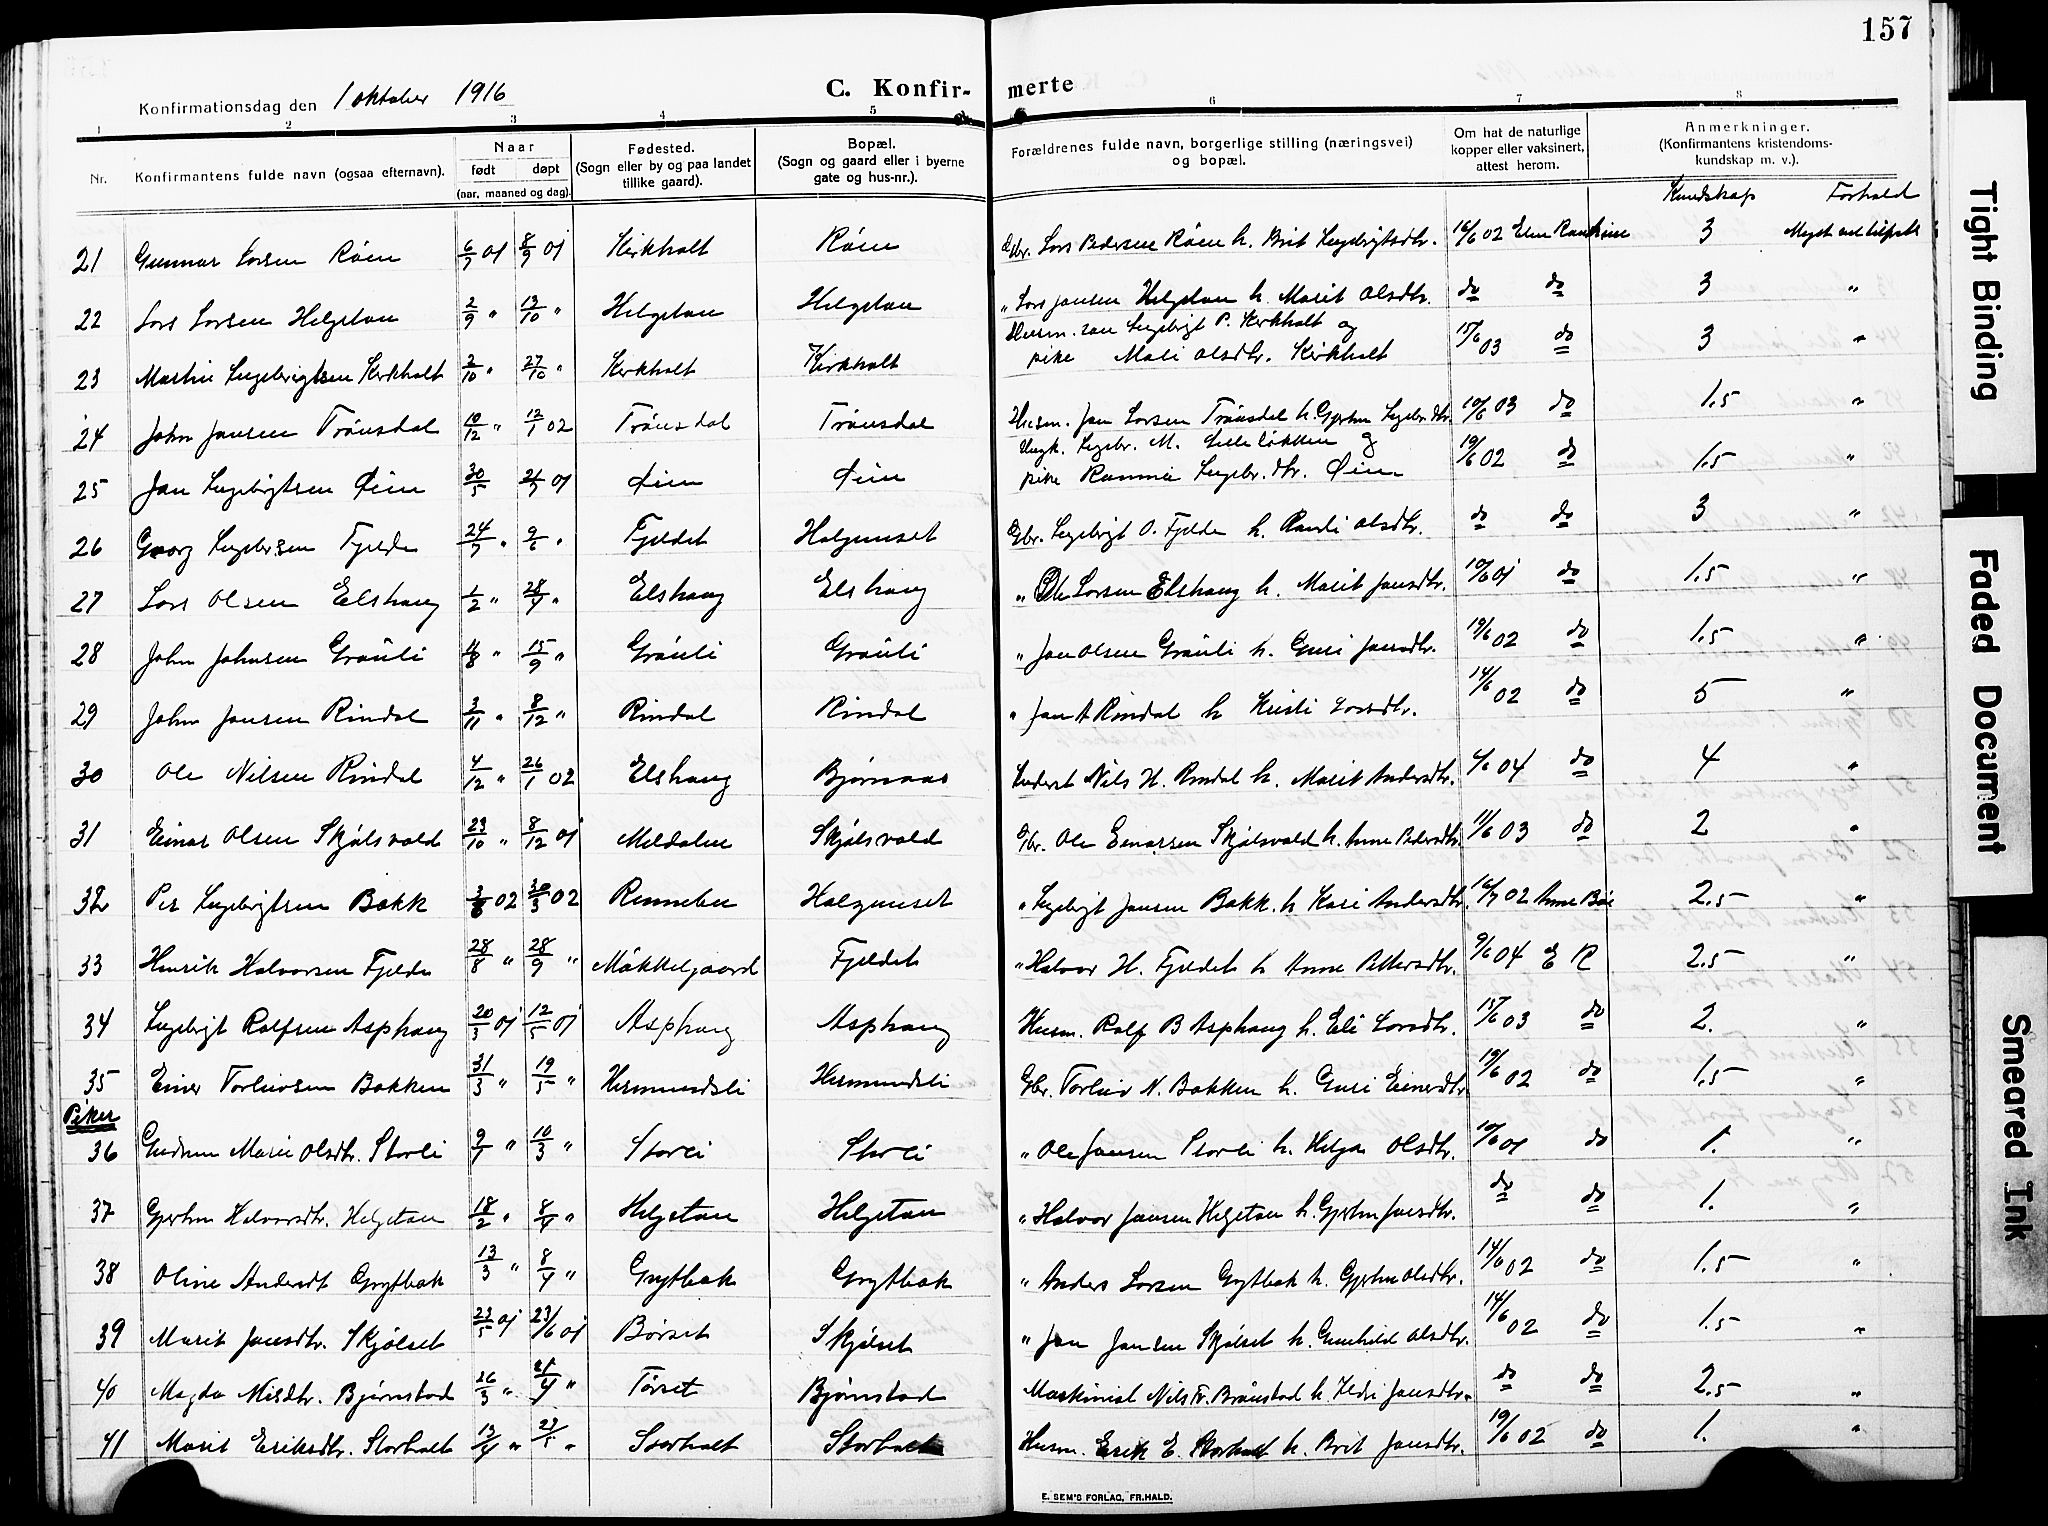 157
Konfirmationsdag den 1 oktober 1916
C. Konfir- merte
1 2 3 4 5 6 7 8
Nr.
Konfirmantens fulde navn (ogsaa efternavn).
Naar
født døpt
(aar, maaned og dag).
Fødested.
(Sogn eller by og paa landet
tillike gaard).
Bopæl.
(Sogn og gaard eller i byerne
gate og hus-nr.).
Forældrenes fulde navn, borgerlige stilling (næringsvei)
og bopæl.
Om hat de naturlige
kopper eller vaksinert,
attest herom.
Anmerkninger.
(Konfirmantens kristendoms-
kundskap m. v.).
Kundskap Forhold
21 Gunnar Larsen Röen 6/7 01 8/9 01 Kirkholt Röen Gbr. Lars Pedersen Röen h. Brit Ingebrigtsdtr. 16/6 02 3
22 Lars Larsen Helgetun 2/9 " 13/10 " Helgetun Helgetun " Lars Jansen Helgetun h. Marit Olsdtr. do do 3 "
23 Martin Ingebrigtsen Kirkholt 2/10 " 27/10 " Kirkholt Kirkholt Ingebrigt P. Kirkholt og
pike Mali Olsdtr. Kirkholt 15/6 03 do 3 "
24 John Jansen Trönsdal 10/12 " 12/1 02 Trönsdal Trönsdal Husm. Jan Larsen Trönsdal h. Gjertru Ingebr.dtr. 10/6 03 do 1.5 "
25 Jan Ingebrigtsen Öien 30/5 01 Öien Öien Ungk. Ingebr. M. Lillelökken og
pike Ingebr.dtr. Öien 19/6 02 do 1.5 "
26 Georg Ingebr.sen Fjelde 24/7 " 9/6 " Fjeldet Halgunset Gbr. Ingebrigt O. Fjelde h. Randi Olsdtr. do do 3 "
27 Lars Olsen Elshaug 1/2 " 28/4 " Elshaug Elshaug " Ole Larsen Elshaug h. Marit Jansdtr. 10/6 01 do 1.5 "
28 John Johnsen Gröuli 15/9 " Gröuli Gröuli " Jan Olsen Gröuli h. Guri Jansdtr. 19/6 02 do 1.5 "
29 John Jansen Rindal 3/11 " 8/12 " Rindal Rindal " Jan A Rindal h Kirsti Larsdtr. 14/6 02 do 5 "
30 Ole Nilsen Rindal 4/12 " 26/1 02 Elshaug Bjørnaas Inderst Nils H. Rindal h. Marit Andersdtr. 04 do 4 "
31 Einar Olsen Skjölsvold 23/10 " 8/12 01 Meldalen Skjölsvold Gbr. Ole Einarsen Skjölsvold h. Anne Pedersdtr. 11/6 03 do 2 "
32 Per Ingebrigtsen Bakk 02 30/3 02 Rennebu Halgunset " Ingebrigt Jansen Bakk. h Kari Andersdtr. 16/7 02 2.5 "
33 Henrik Halvorsen Fjelde 28/8 " 28/9 " Mökkelgaard Fjeldet " Halvor H. Fjeldet h Anne Pettersdtr. 9/6 04 E R 2.5 "
34 Ingebrigt Rolfsen Asphaug 20/3 01 12/5 01 Asphaug Asphaug Husm. Rolf B Asphaug h. Eli Larsdtr. 15/6 03 do 2. "
35 Einer Torleivsen Bakken 31/3 " 19/5 " Hermundsli Hermundsli Gbr. Torleiv N. Bakken h. Guri Einersdtr. 19/6 02 do 1.5 "
Piker
36 Gudrun Marie Olsdtr. Storli 9/1 " 10/3 " Storli Storli " Ole Jansen Storli h. Helga Olsdtr. 10/6 01 do 1. "
37 Gjertru Halvorsdtr. Helgetun 18/2 " 8/4 " Helgetun Helgetun " Halvor Jansen Helgetun h. Gjertru Jansdtr. do do 1. "
38 Oline Andersdt Grytbak 13/3 " 8/4 " Grytbak Grytbak " Anders Larsen Grytbak h. Gjertru Olsdtr. 14/6 02 do 1.5 "
39 Marit Jansdtr. Skjølset 23/5 01 23/6 01 Børset Skjølset " Jan Jansen Skjølset h. Gunhild Olsdtr. 14/6 02 do 1.5 "
40 Magda Nilsdtr. Bjørnstad 26/3 " 21/4 " Törset Bjørnstad Maskinist Nils Fr. Brønstad h. Ildri Jansdtr. do do 2.5 "
41 Marit Eriksdtr. Storholt 13/4 " Storholt Storholt Husm. Erik E. Storholt h. Brit Jansdtr. 19/6 02 do 1. "
E. SEM'S FORLAG, FR.HALD.
Tight Binding
Faded Document
Smeared Ink